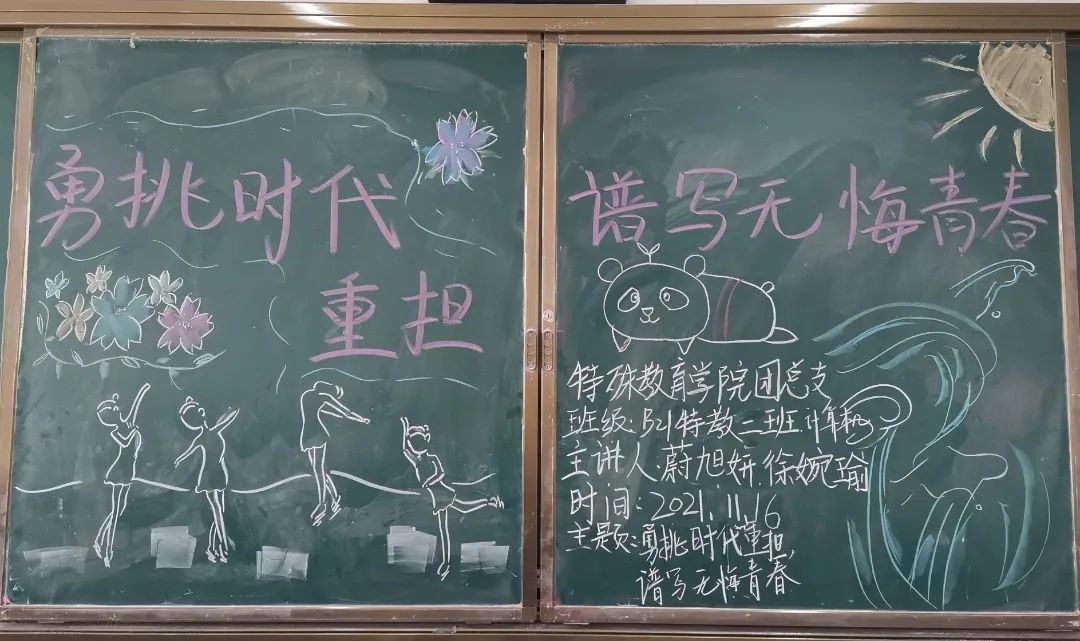 勇挑时代
重担
谱写无悔青春
特殊教育学院团总支
班级:B21特教二班.计算机
主讲人:蔚旭妍 徐婉瑜
时间:2021.11.16
主题:勇挑时代重担,
谱写无悔青春